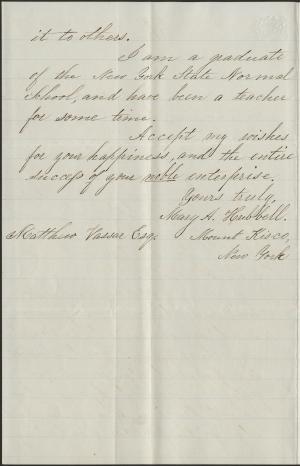 it to others.
I am a graduate
of the New York State Normal
School, and have been a teacher
for some time.
Accept my wishes
for your happiness, and the entire
success of your noble enterprise.
Yours truly,
Mary A. Hubbell.
Matthew Vassar Esq. Mount Kisco,
New York